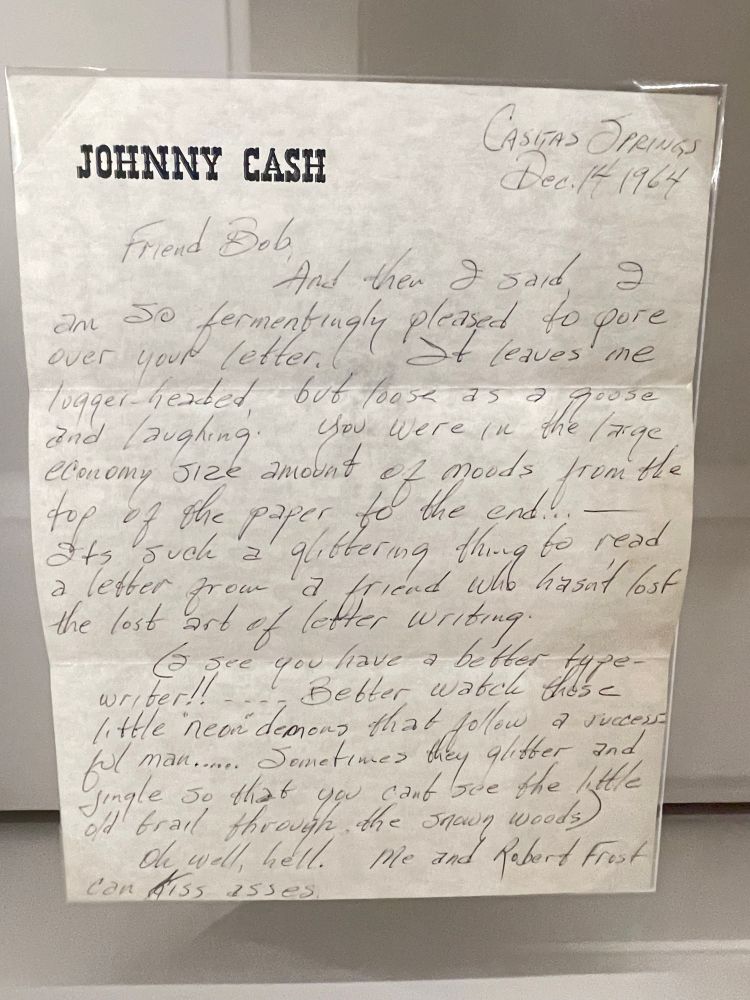 JOHNNY CASH
CASITAS SPRINGS
Dec. 14 1964
Friend Bob,
And then I said, I
am so fermentingly pleased to pore
over your letter. It leaves me
logger-headed, but loose as a goose
and laughing. You were in the large
economy size amount of moods from the
top of the paper to the end... —
Its such a glittering thing to read
a letter from a friend who hasn't lost
the lost art of letter writing.
(I see you have a better type-
writer!! ---- Better watch those
little "neon" demons that follow a success-
ful man..... Sometimes they glitter and
jingle so that you cant see the little
old trail through the snowy woods)
Oh well, hell. Me and Robert Frost
can kiss asses.